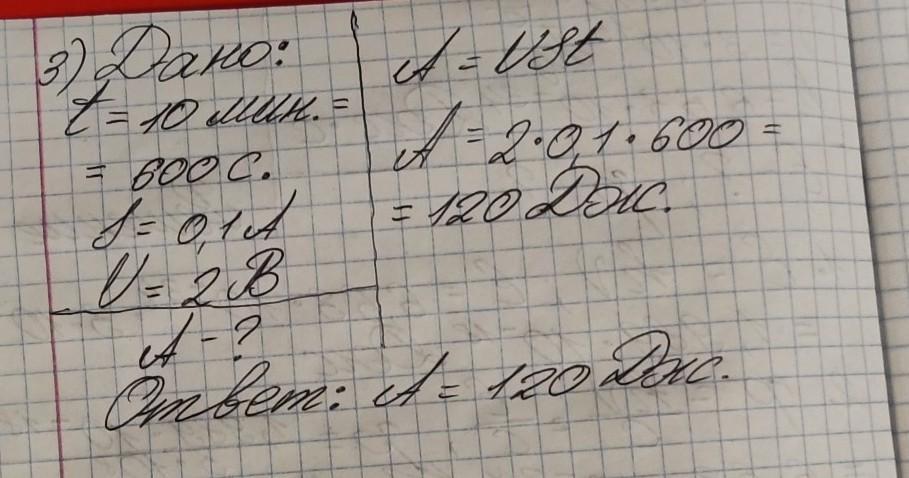 3) Дано:
t = 10 мин. =
= 600 с.
I = 0,1 А
U = 2 В
А - ?
А = UIt
А = 2 · 0,1 · 600 =
= 120 Дж.
Ответ: А = 120 Дж.